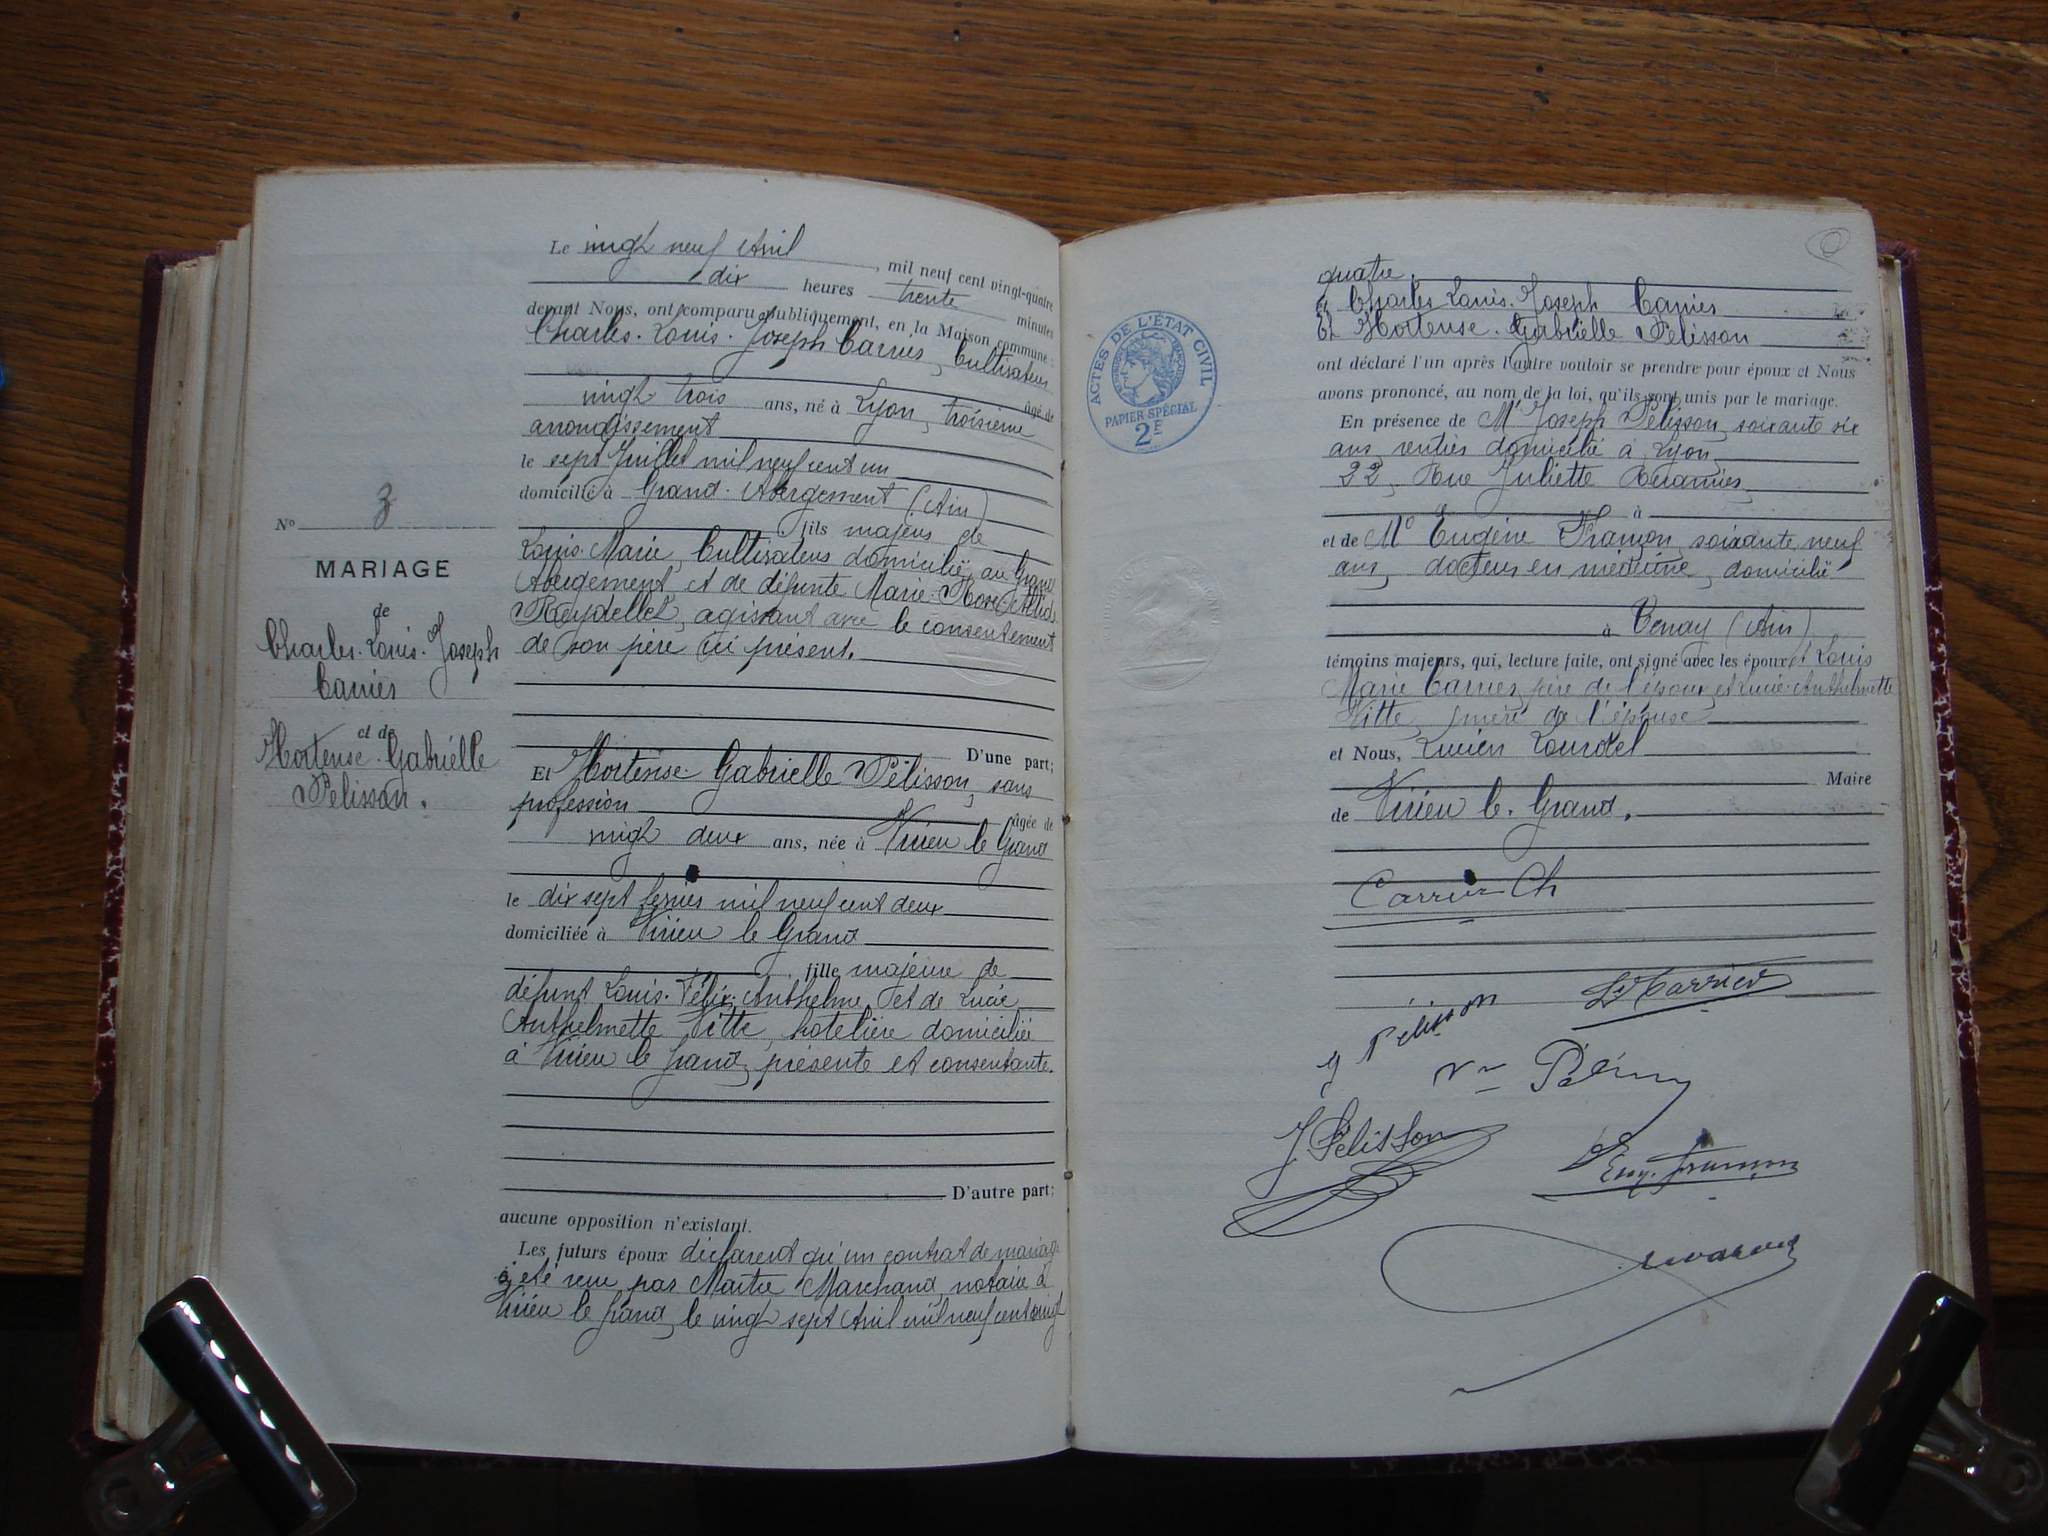 Le vingt neuf Avril, mil neuf cent vingt-quatre
dix heures trente minutes
devant Nous, ont comparu publiquement, en la Maison commune :
Charles. Louis. Joseph Carrier, Cultivateur
âgé de
vingt trois ans, né à Lyon, troisième
arrondissement
le sept Juillet mil neuf cent un
domicilié à Grand. Abergement (Ain)
fils majeur de
Louis. Marie, Cultivateur domicilié au Grand
Abergement, et de défunte Marie. Rose
Reydellet, agissant avec le consentement
de son père ici présent.
N° 3
MARIAGE
de
Charles. Louis. Joseph
Carrier
et de
Hortense. Gabrielle
Pélisson.
D'une part;
Et Hortense. Gabrielle Pélisson, sans
profession
âgée de
vingt deux ans, née à Virieu le Grand
le dix sept février mil neuf cent deux
domiciliée à Virieu le Grand
fille majeure de
défunt Louis. Félix. Anthelme, et de Lucie
Anthelmette Vitte, hotelière domiciliée
à Virieu le Grand, présente et consentante.
D'autre part;
aucune opposition n'existant.
Les futurs époux déclarent qu'un contrat de mariage
a été reçu par Maître Marchand, notaire à
Virieu le Grand, le vingt sept Avril mil neuf cent vingt
quatre.
ACTES DE L'ÉTAT CIVIL
PAPIER SPÉCIAL
2E
Et Charles. Louis. Joseph Carrier
Et Hortense. Gabrielle Pélisson
ont déclaré l'un après l'autre vouloir se prendre pour époux et Nous
avons prononcé, au nom de la loi, qu'ils sont unis par le mariage.
En présence de Mr Joseph Pélisson, soixante six
ans, rentier domicilié à Lyon,
22, Rue Juliette Récamier,
à
et de Mr Eugène Framon, soixante neuf
ans, docteur en médecine, domicilié
à Tenay (Ain)
témoins majeurs, qui, lecture faite, ont signé avec les époux et Louis
Marie Carrier, père de l'époux, et Lucie. Anthelmette
Vitte, mère de l'épouse
et Nous, Lucien Lourdel
Maire
de Virieu le. Grand.
Carrier Ch
g Pélisson
Ls Carrier
Vve
J. Pélisson